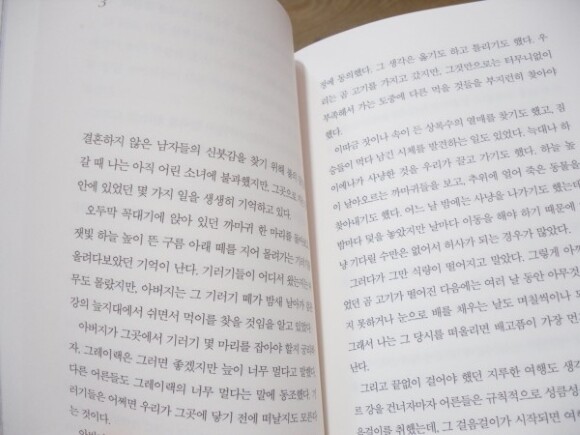 3
결혼하지 않은 남자들의 신붓감을 찾기 위해
갈 때 나는 아직 어린 소녀에 불과했지만, 그곳으로
안에 있었던 몇 가지 일을 생생히 기억하고 있다.
오두막 꼭대기에 앉아 있던 까마귀 한 마리를
잿빛 하늘 높이 뜬 구름 아래 떼를 지어 몰려가는 기러기
올려다보았던 기억이 난다. 기러기들이 어디서 왔는지는
무도 몰랐지만, 아버지는 그 기러기 떼가 밤새 남아
강의 늪지대에서 쉬면서 먹이를 찾을 것임을 알고 있었다.
아버지가 그곳에서 기러기 몇 마리를 잡아야 할지
자, 그레이랙은 그러면 좋겠지만 늪이 너무 멀다고 말했다.
다른 어른들도 그레이랙의 너무 멀다는 말에 동조했다.
러기들은 어쩌면 우리가 그곳에 닿기 전에 떠날지도 모른다
는 것이다.
장에 동의했다. 그 생각은 옳기도 하고 틀리기도 했다. 우
리는 곰 고기를 가지고 갔지만, 그것만으로는 터무니없이
부족해서 가는 도중에 다른 먹을 것들을 부지런히 찾아야
했다.
이따금 잣이나 속이 든 상목수의 열매를 찾기도 했고, 짐
승들이 먹다 남긴 시체를 발견하는 일도 있었다. 늑대나 하
이에나가 사냥한 것을 우리가 끌고 가기도 했다. 하늘 높
이 날아오르는 까마귀들을 보고, 추위에 얼어 죽은 동물을
찾아내기도 했다. 어느 날 밤에는 사냥을 나가기도 했는데
밤마다 덫을 놓았지만 날마다 이동을 해야 하기 때문에
냥 기다릴 수만은 없어서 허사가 되는 경우가 많았다.
그러다가 그만 식량이 떨어지고 말았다. 그렇게
었던 곰 고기가 떨어진 다음에는 여러 날 동안 아무것
지 못하거나 눈으로 배를 채우는 날도 며칠씩이나
그래서 나는 그 당시를 떠올리면 배고픔이 가장 먼저
난다.
그리고 끝없이 걸어야 했던 지루한 여행도 생각
르 강을 건너자마자 어른들은 규칙적으로 성큼성
음걸이를 취했는데, 그 걸음걸이가 시작되면